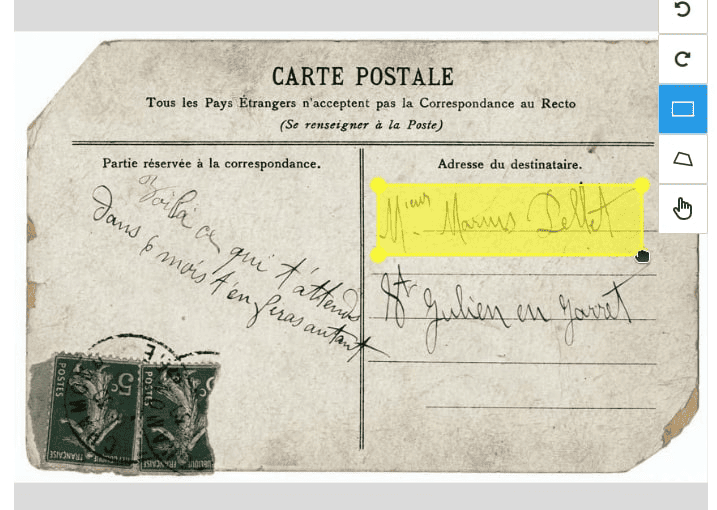 CARTE POSTALE
Tous les Pays Étrangers n'acceptent pas la Correspondance au Recto
(Se renseigner à la Poste)
Partie réservée à la correspondance.
Voilà ce qui t'attends
dans 6 mois t'en feras autant
Adresse du destinataire.
Mieur Marius Pellet
St Julien en Jarret
POSTES
5c
POSTES